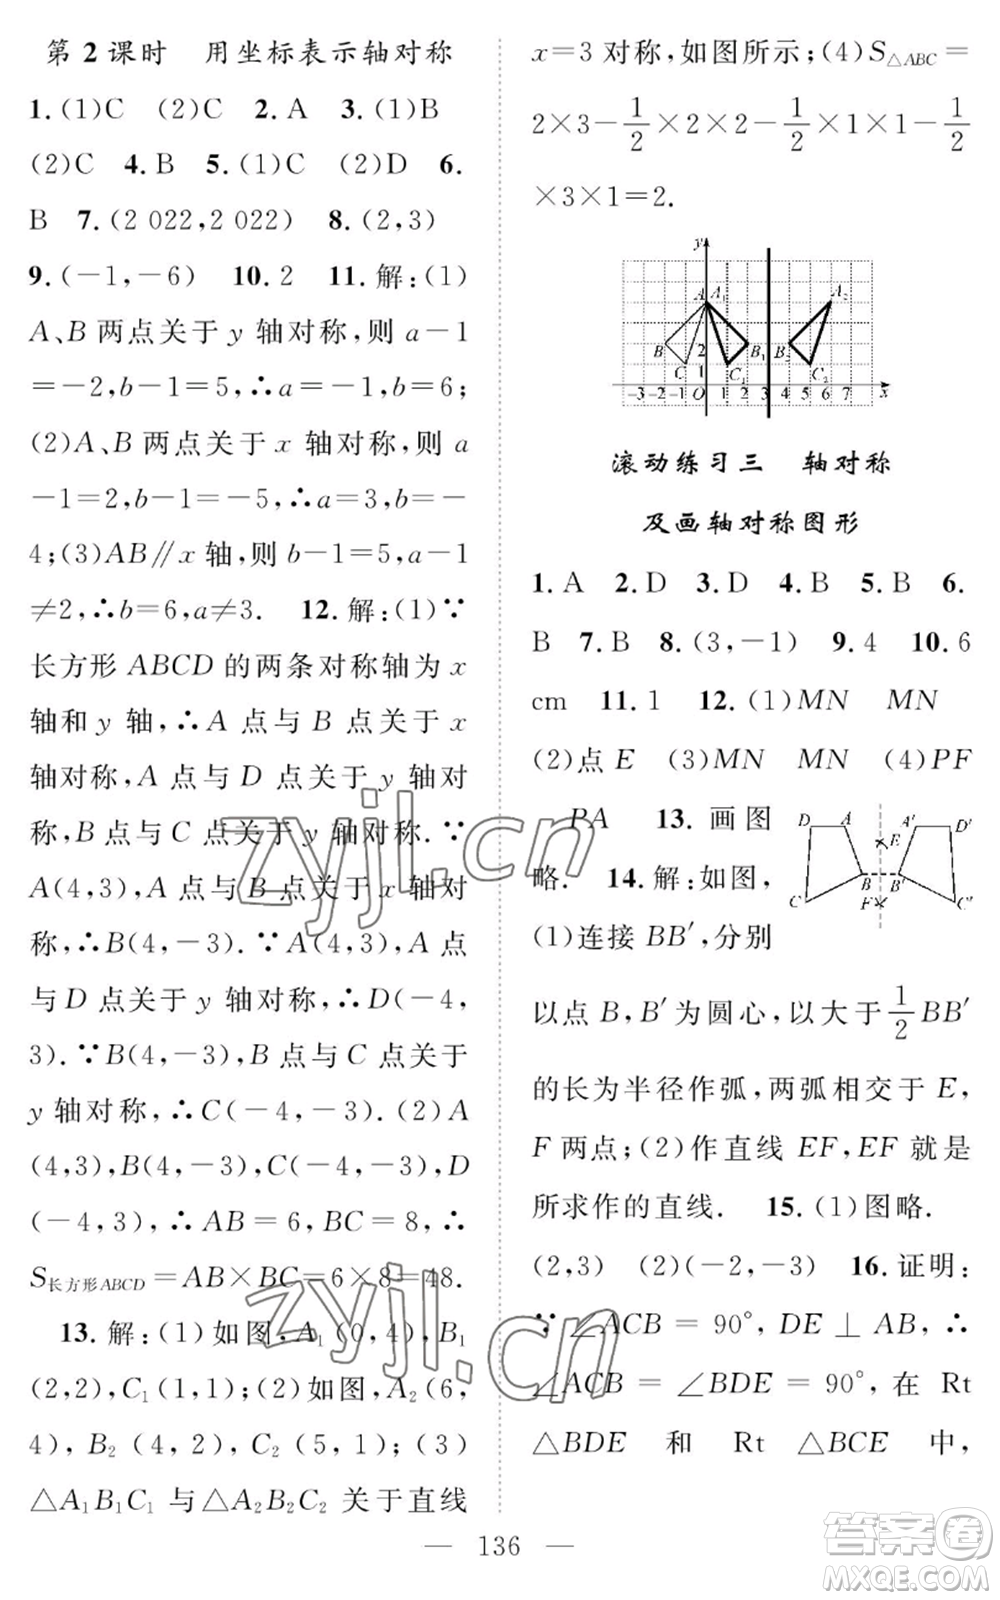 第2课时 用坐标表示轴对称
1.(1)C (2)C 2.A 3.(1)B
(2)C 4.B 5.(1)C (2)D 6.
B 7.(2 022,2 022) 8.(2,3)
9.(-1,-6) 10.2 11.解:(1)
A、B两点关于y轴对称,则a-1
=-2,b-1=5,∴a=-1,b=6;
(2)A、B两点关于x轴对称,则a
-1=2,b-1=-5,∴a=3,b=-
4;(3)AB∥x轴,则b-1=5,a-1
≠2,∴b=6,a≠3. 12.解:(1)∵
长方形ABCD的两条对称轴为x
轴和y轴,∴A点与B点关于x
轴对称,A点与D点关于y轴对
称,B点与C点关于y轴对称.∵
A(4,3),A点与B点关于x轴对
称,∴B(4,-3).∵A(4,3),A点
与D点关于y轴对称,∴D(-4,
3).∵B(4,-3),B点与C点关于
y轴对称,∴C(-4,-3).(2)A
(4,3),B(4,-3),C(-4,-3),D
(-4,3),∴AB=6,BC=8,∴
S长方形ABCD=AB×BC=6×8=48.
13.解:(1)如图,A₁(0,4),B₁
(2,2),C₁(1,1);(2)如图,A₂(6,
4),B₂(4,2),C₂(5,1);(3)
△A₁B₁C₁与△A₂B₂C₂关于直线
x=3对称,如图所示;(4)S△ABC=
2×3-1/2×2×2-1/2×1×1-1/2
×3×1=2.
y
A A₁ A₂
B 2 B₁ B₂
C 1 C₁ C₂
-3 -2 -1 O 1 2 3 4 5 6 7 x
滚动练习三 轴对称
及画轴对称图形
1.A 2.D 3.D 4.B 5.B 6.
B 7.B 8.(3,-1) 9.4 10.6
cm 11.1 12.(1)MN MN
(2)点E (3)MN MN (4)PF
PA 13.画图
略. 14.解:如图,
(1)连接BB′,分别
D A A′ D′
E
B B′
C F C′
以点B,B′为圆心,以大于1/2BB′
的长为半径作弧,两弧相交于E,
F两点;(2)作直线EF,EF就是
所求作的直线. 15.(1)图略.
(2,3) (2)(-2,-3) 16.证明:
∵∠ACB=90°,DE⊥AB,∴
∠ACB=∠BDE=90°,在Rt
△BDE和Rt△BCE中,
— 136 —
zyjl.cn
zyjl.cn
答案卷
MXQE.COM